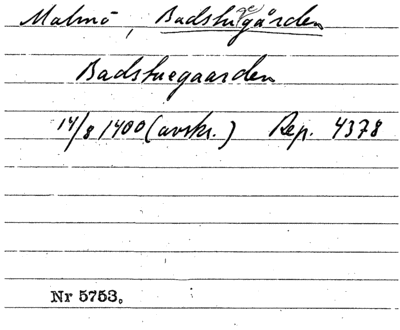 Malmö, Badstugården
Badstuegaarden
14/8 1400 (avskr.) Rep. 4378
Nr 5753.